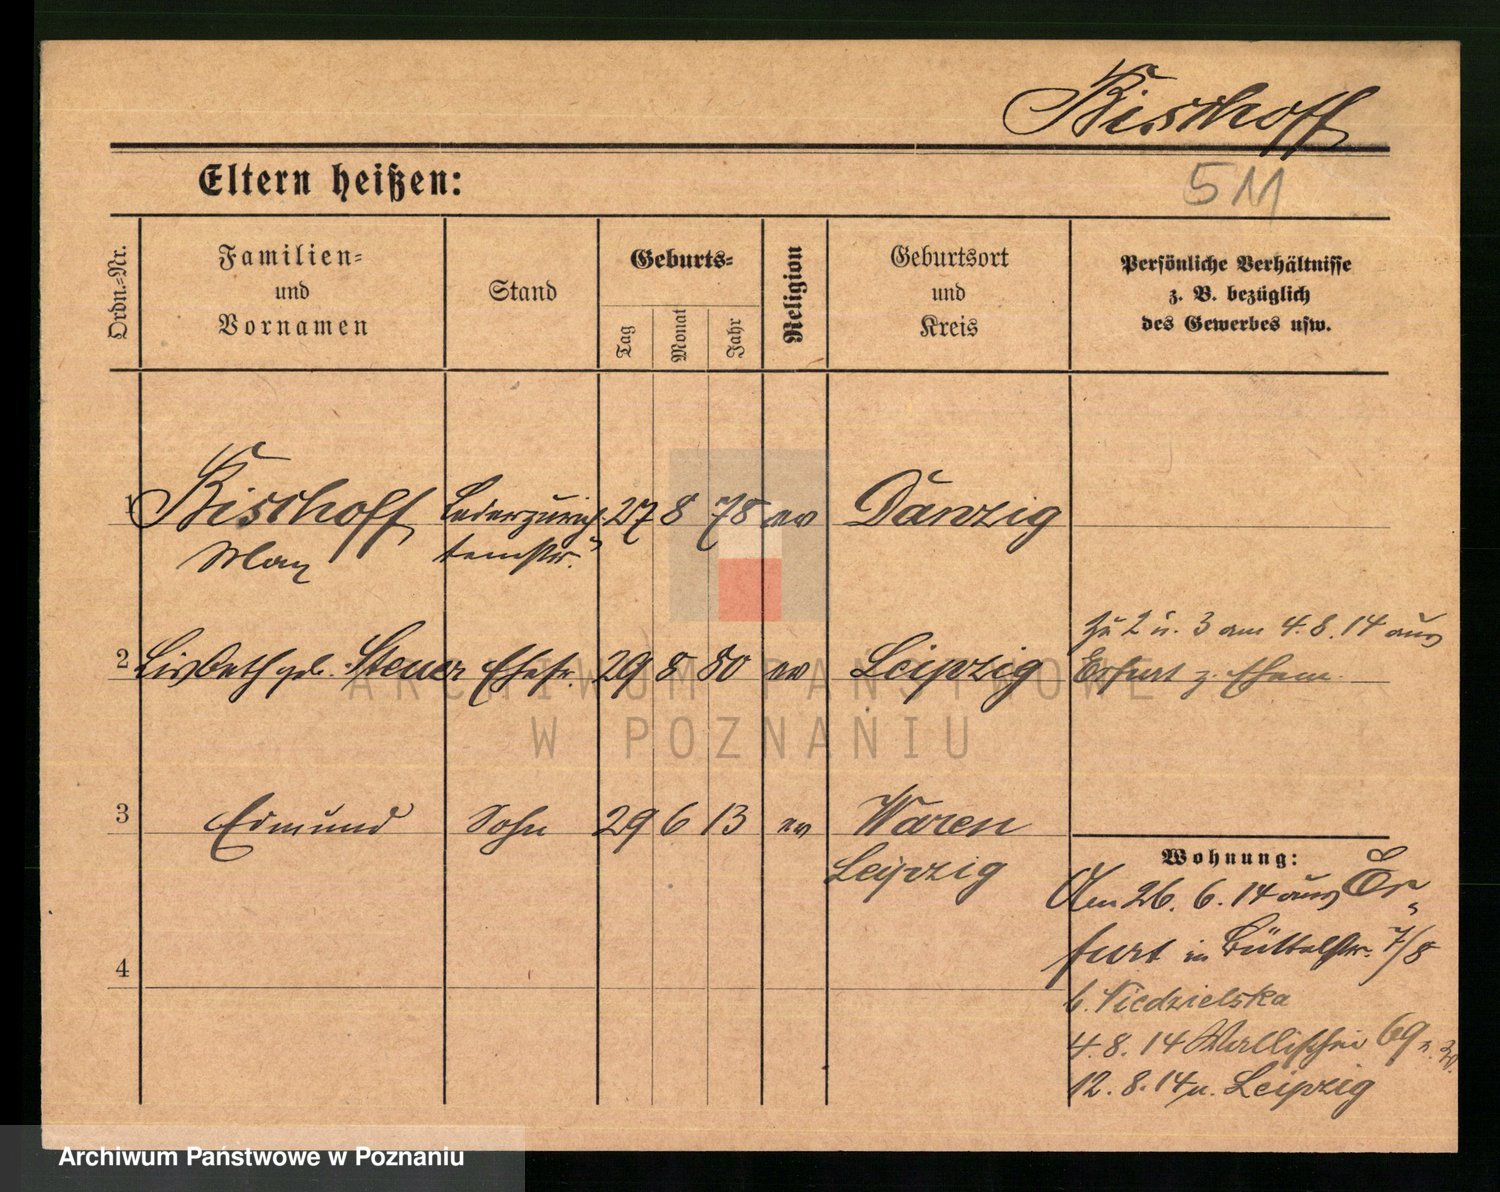 Bischoff
Eltern heißen:
5M
Ordn.-Nr.
Familien-
und
Vornamen
Stand
Geburts-
Tag
Monat
Jahr
Religion
Geburtsort
und
Kreis
Persönliche Verhältnisse
z. B. bezüglich
des Gewerbes usw.
1 Bischoff Lederzurich- 27 8 78 ev Danzig
Max
zu 2 u. 3 am 4.8.14 aus
2 Lisbeth geb. Steuer Ehefr. 29 8 80 ev Leipzig Erfurt z. Ehem.
3 Edmund Sohn 29 6 13 ev Waren
Leipzig
Wohnung:
Am 26.6.14 aus Er-
furt in Büttelstr. 7/8
4
b. Niedzielska
4.8.14 Wallischei 69
12.8.14 n. Leipzig
ARCHIWUM PAŃSTWOWE
W POZNANIU
Archiwum Państwowe w Poznaniu